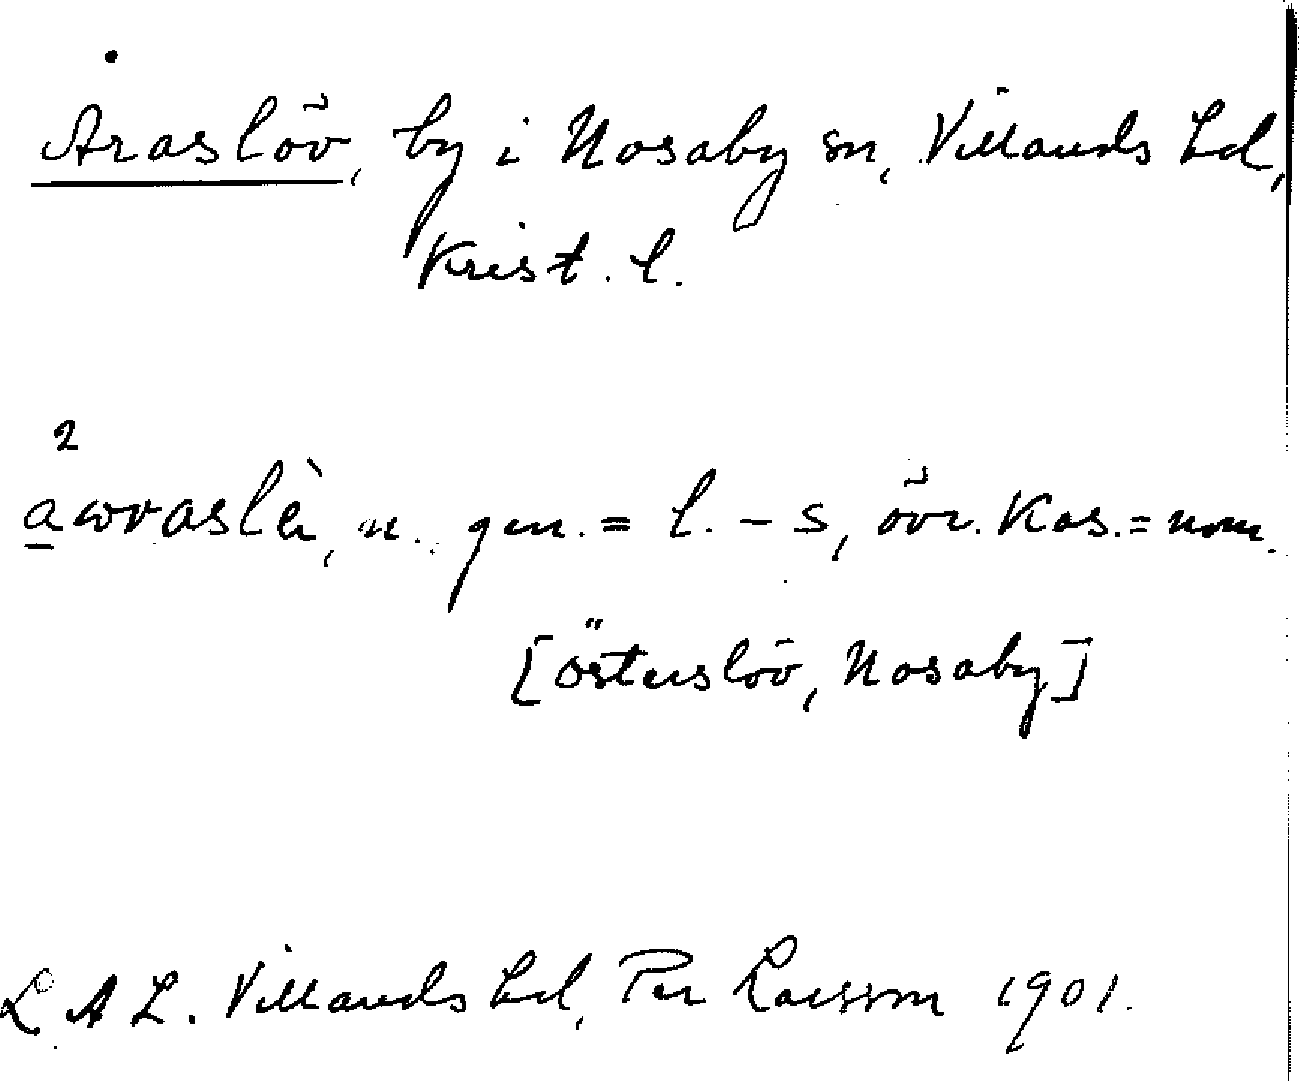 Araslöv, by i Nosaby sn, Villands hd,
Krist. l.
2
awraslè, n. gen. = l. - s, övr. kas. = nom.
[Österslöv, Nosaby]
L A L. Villands hd, Per Larsson 1901.